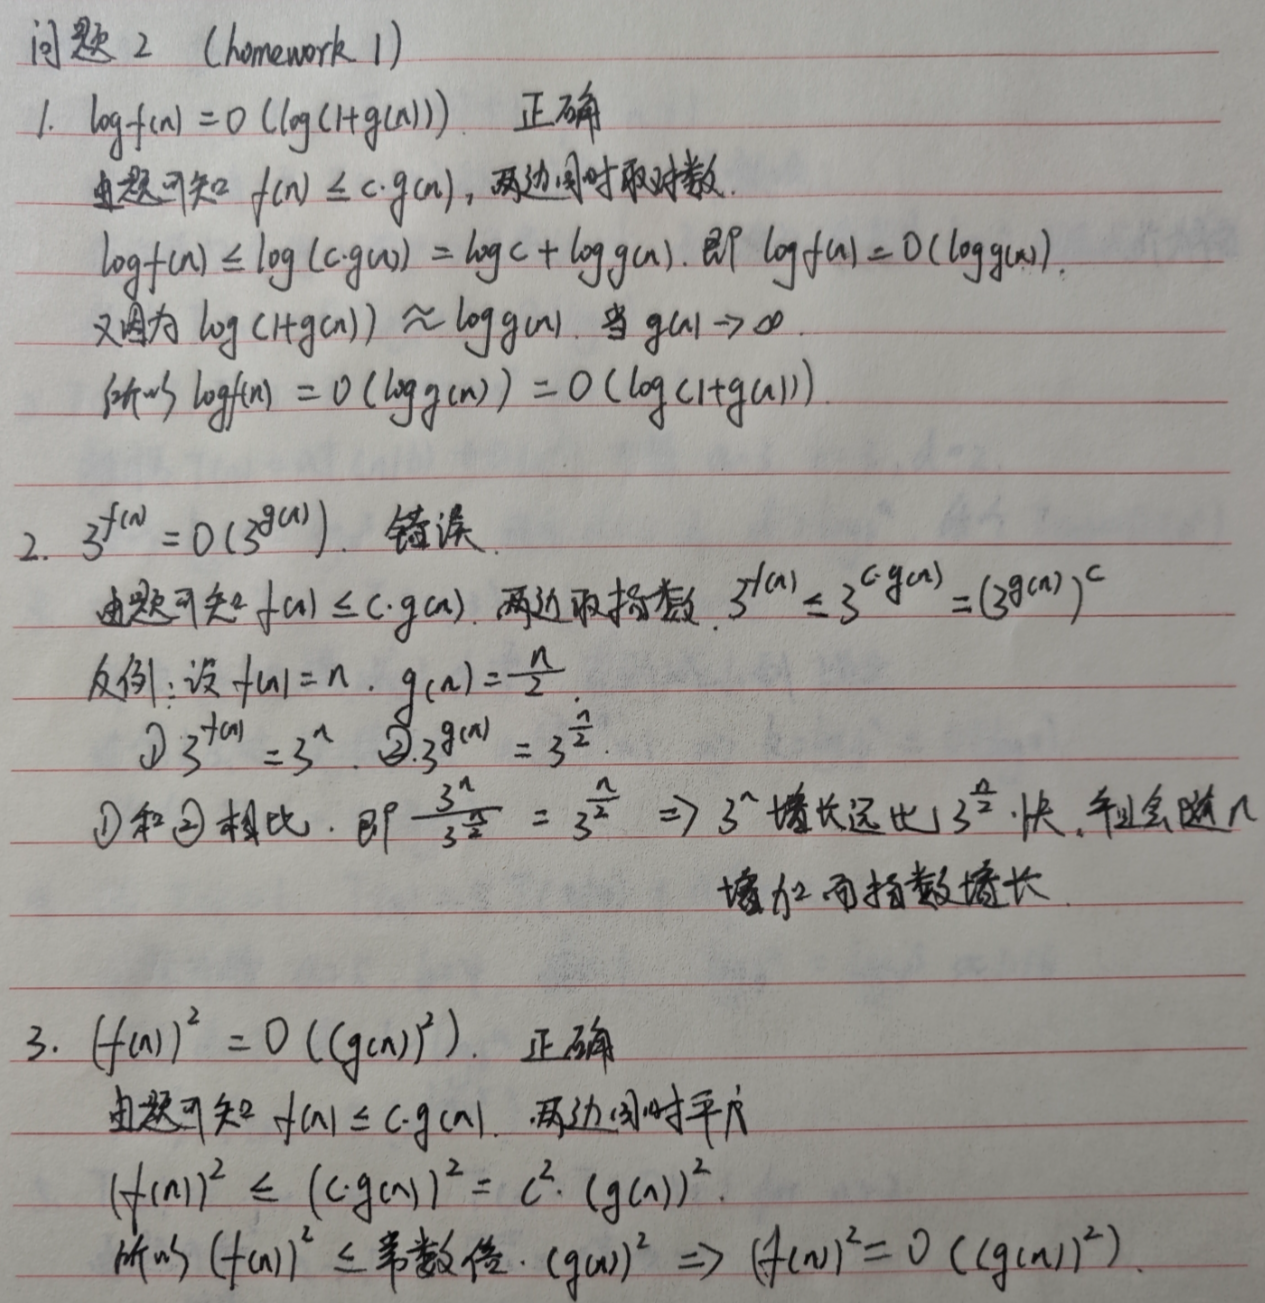 问题2 (homework 1)
1. logf(n) = O(log(1+g(n))) 正确
由题可知 f(n) ≤ c·g(n), 两边同时取对数.
logf(n) ≤ log(c·g(n)) = logc + logg(n). 即 logf(n) = O(logg(n)).
又因为 log(1+g(n)) ≈ logg(n). 当 g(n) → ∞.
所以 logf(n) = O(logg(n)) = O(log(1+g(n)))
2. 3^{f(n)} = O(3^{g(n)}). 错误.
由题可知 f(n) ≤ c·g(n). 两边取指数. 3^{f(n)} ≤ 3^{c·g(n)} = (3^{g(n)})^c
反例: 设 f(n) = n. g(n) = n/2.
① 3^{f(n)} = 3^n. ②. 3^{g(n)} = 3^{n/2}.
①和②相比. 即 3^n/3^{n/2} = 3^{n/2} ⇒ 3^n 增长远比 3^{n/2} 快. 并且会随n
增加而指数增长.
3. (f(n))² = O((g(n))²). 正确
由题可知 f(n) ≤ c·g(n). 两边同时平方
(f(n))² ≤ (c·g(n))² = c²·(g(n))².
所以 (f(n))² ≤ 常数倍·(g(n))² ⇒ (f(n))² = O((g(n))²).